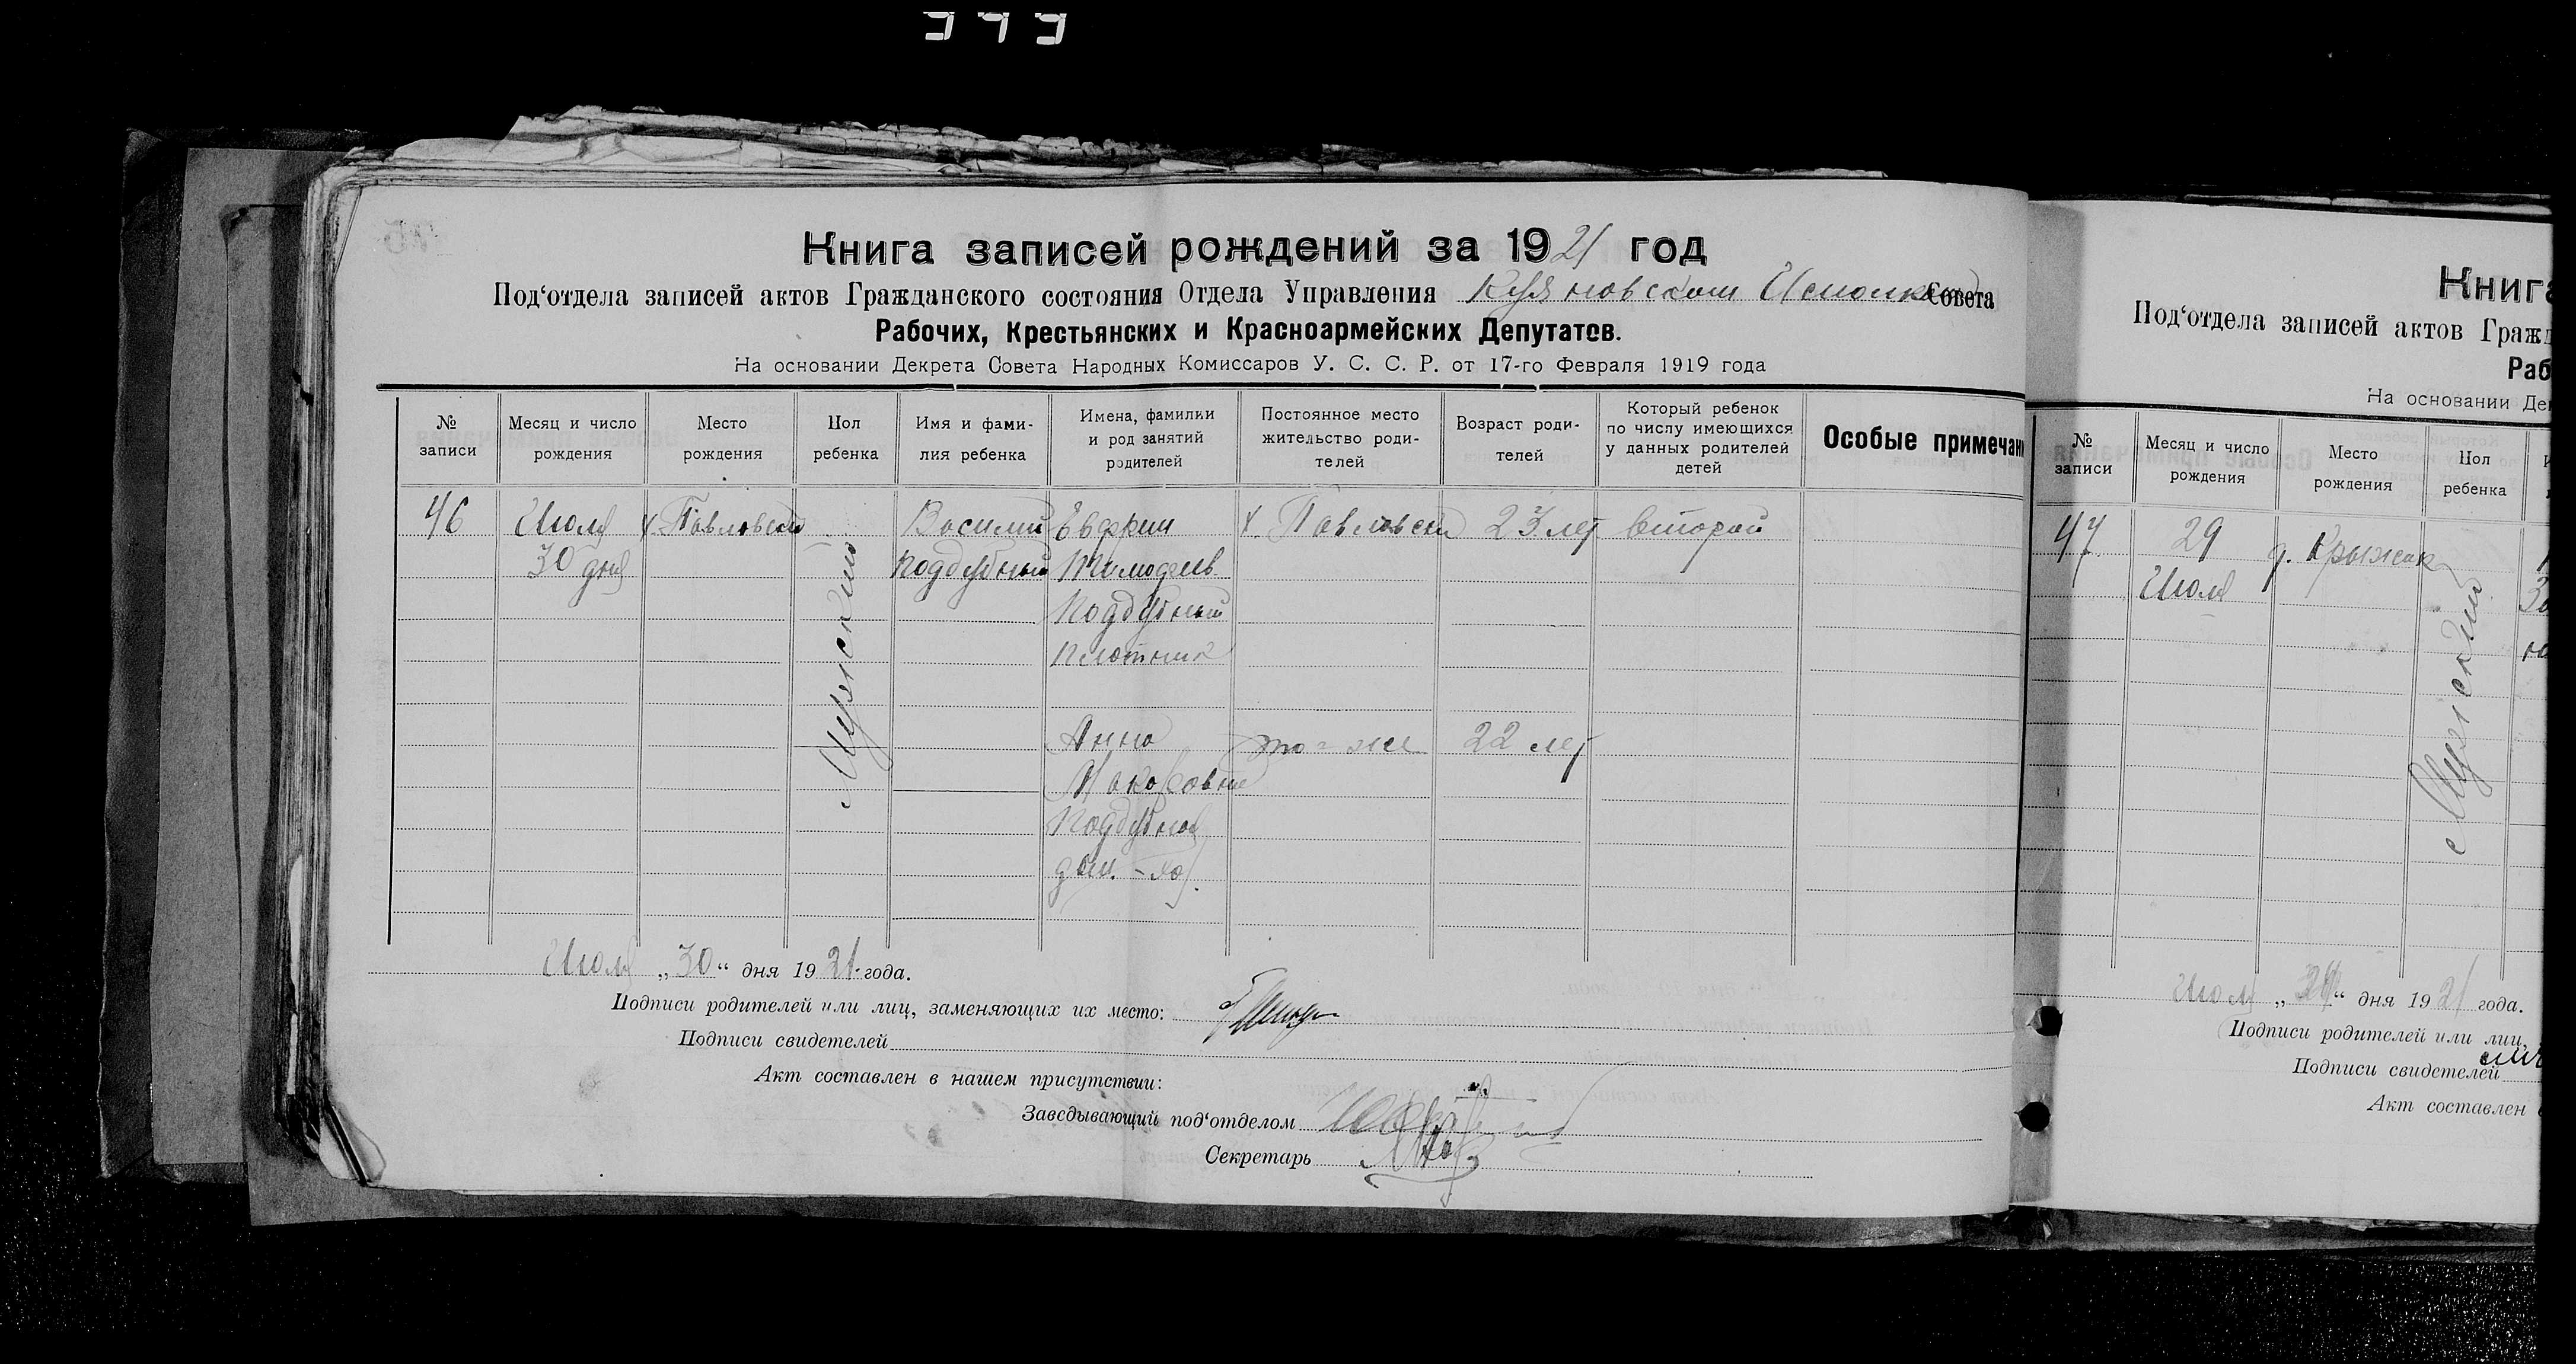 Книга записей рождений за 1921 год
Под‘отдела записей актов Гражданского состояния Отдела Управления Совета
Рабочих, Крестьянских и Красноармейских Депутатов.
На основании Декрета Совета Народных Комиссаров У. С. С. Р. от 17-го Февраля 1919 года
№ записи
Месяц и число рождения
Место рождения
Пол ребенка
Имя и фами-
лия ребенка
Имена, фамилии
и род занятий
родителей
Постоянное место
жительство роди-
телей
Возраст роди-
телей
Который ребенок
по числу имеющихся
у данных родителей
детей
Особые примечан
46
Июля
30 дня
х. Павловски
Мужский
Василий
Поддубный
Евфрим
Тимофеев
Поддубный
плотник
х. Павловски
23 лет
второй
Анна
Макаровна
Поддубная
дом. хоз.
то-же
22 лет
Июля „30“ дня 1921 года.
Подписи родителей или лиц, заменяющих их место:
Подписи свидетелей
Акт составлен в нашем присутствии:
Заведывающий под‘отделом
Секретарь
Книга
Под‘отдела записей актов Гражд
Раб
На основании Де
№ записи
Месяц и число
рождения
Место
рождения
Пол
ребенка
47
29
Июля
д. Крыжик
Мужский
Июля „29“ дня 1921 года.
Подписи родителей или лиц,
Подписи свидетелей
Акт составлен